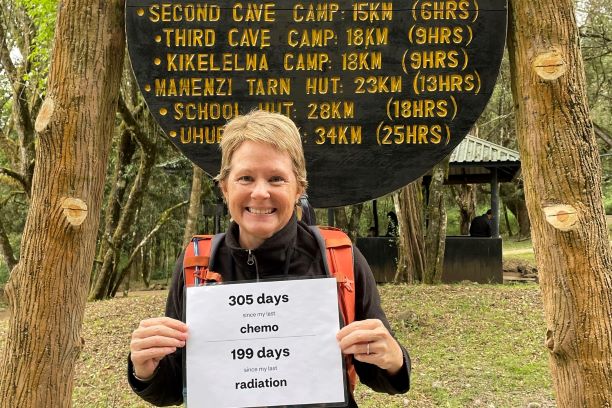 •SECOND CAVE CAMP: 15KM (6HRS)
•THIRD CAVE CAMP: 18KM (9HRS)
•KIKELELWA CAMP: 18KM (9HRS)
•MAWENZI TARN HUT: 23KM (13HRS)
•SCHOOL HUT: 28KM (18HRS)
34KM (25HRS)
305 days
since my last
chemo
199 days
since my last
radiation